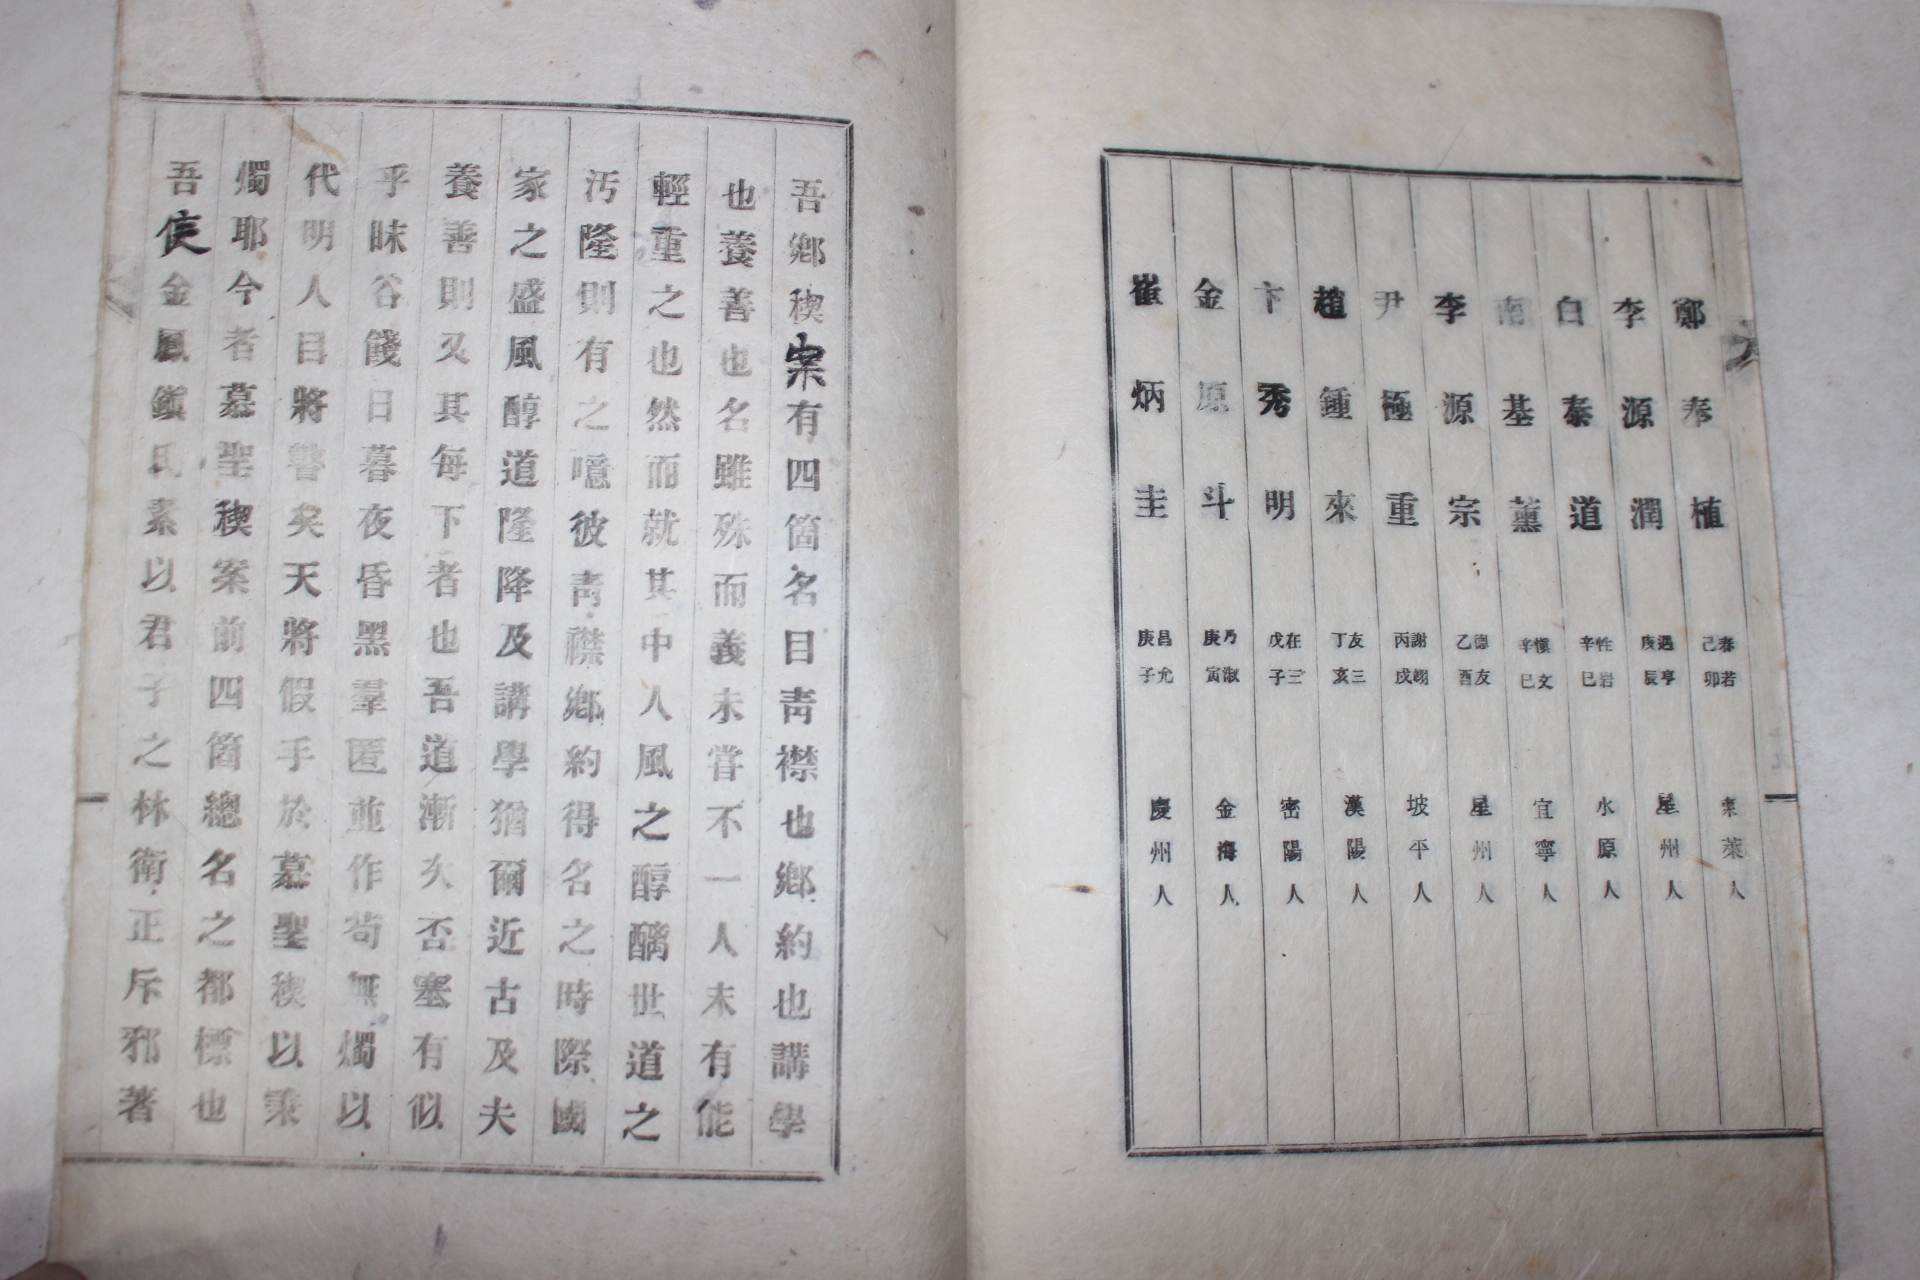 鄭奉植 春若 己卯 東萊人
李源潤 遇亨 庚辰 星州人
白泰道 性岩 辛巳 水原人
南基薰 愼文 辛巳 宜寧人
李源宗 德友 乙酉 星州人
尹極重 謝翊 丙戌 坡平人
趙鍾來 友三 丁亥 漢陽人
卞秀明 在三 戊子 密陽人
金原斗 乃淑 庚寅 金海人
崔炳圭 昌允 庚子 慶州人
吾鄉稧案有四箇名目靑襟也鄉約也講學
也養善也名雖殊而義未嘗不一人未有能
輕重之也然而就其中人風之醇醨世道之
汚隆則有之噫彼靑襟鄉約得名之時際國
家之盛風醇道隆降及講學猶爾近古及夫
養善則又其每下者也吾道漸久否塞有似
乎昧谷餞日暮夜昏黑羣匿並作苟無燭以
代明人目將瞽矣天將假手於慕聖稧以秉
燭耶今者慕聖稧案前四箇總名之都標也
吾侯金鳳鎭氏素以君子之林衛正斥邪著